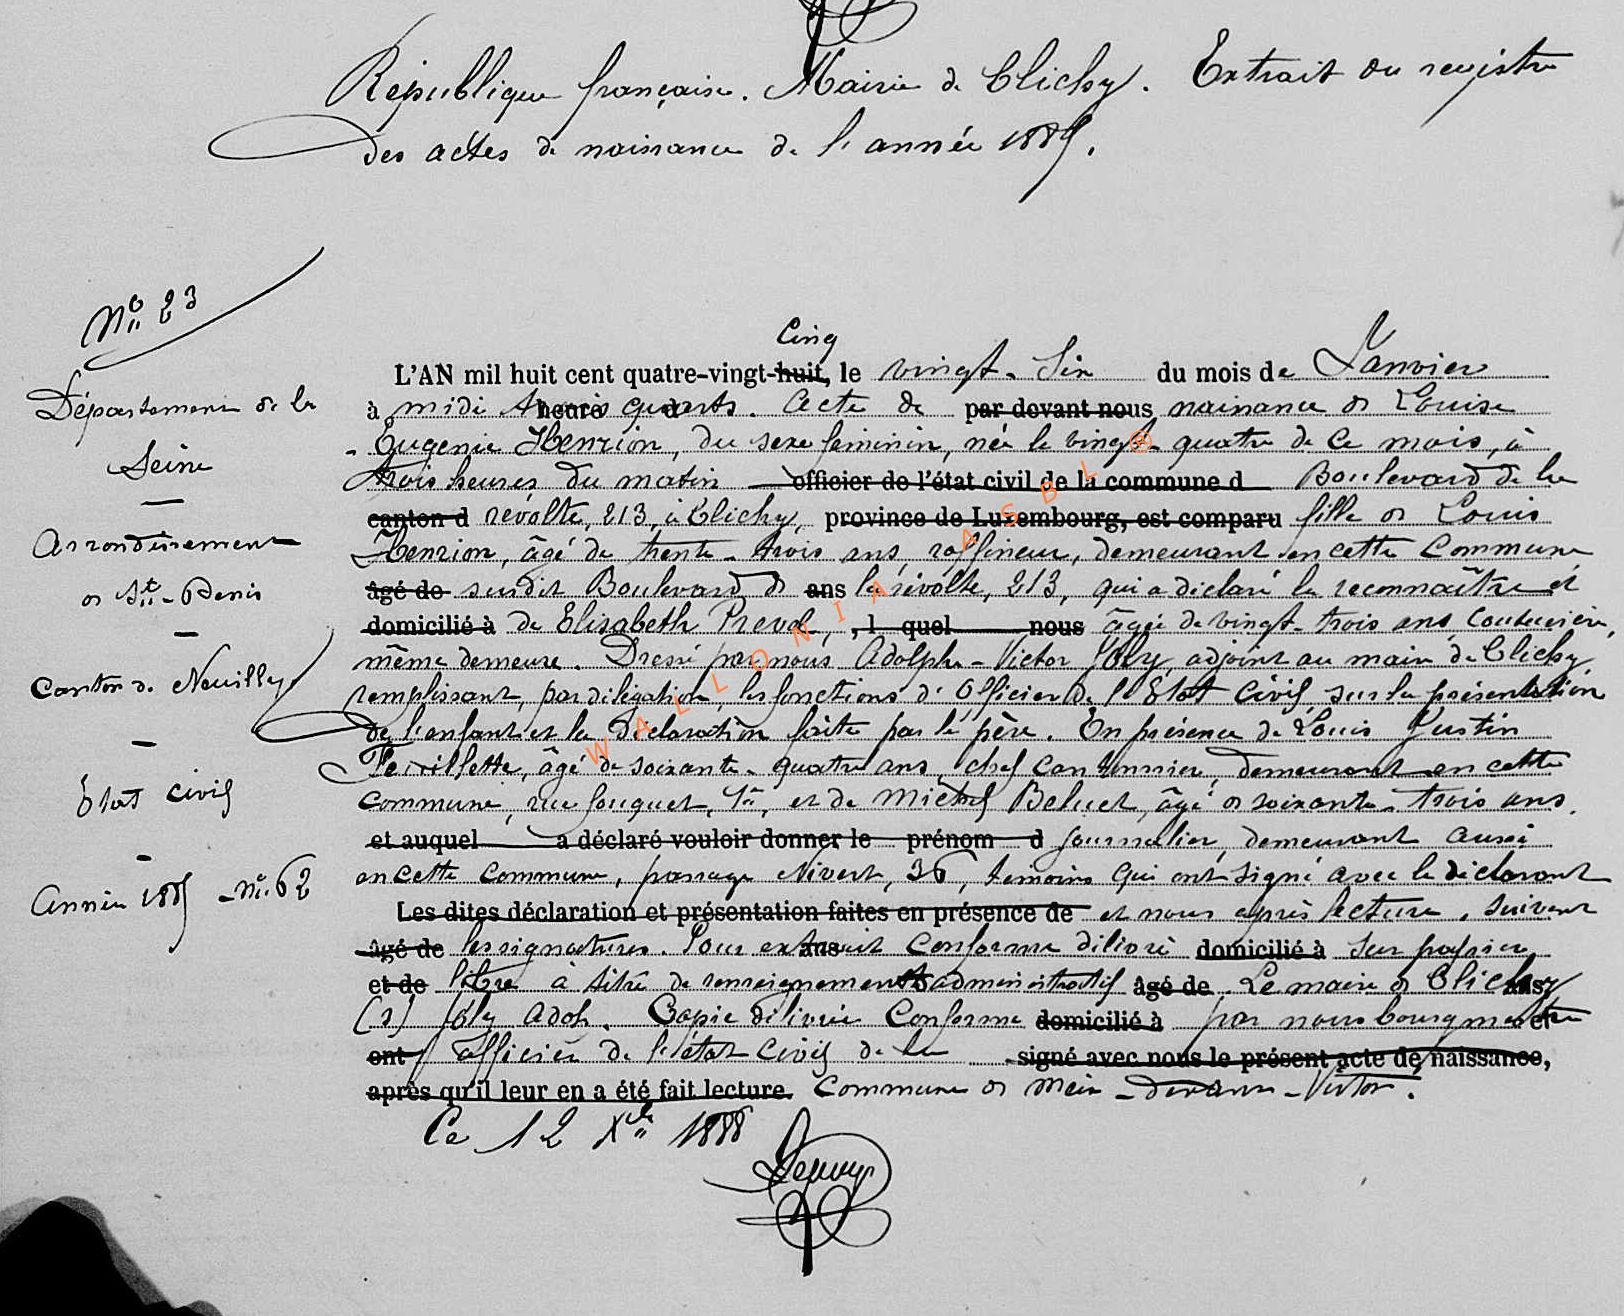 République française. Mairie de Clichy. Extrait du registre
des actes de naissance de l'année 1885.
N° 23
Département de la
Seine
Arrondissement
de St-Denis
Canton de Neuilly
État civil
Année 1885 - n° 62
Cinq
L'AN mil huit cent quatre-vingt-huit, le vingt-six du mois de Janvier
à midi trois heure quarts. d Acte de par devant nous naissance de Louise
Eugenie Henrion, du sexe feminin, née le vingt-quatre de ce mois, à
trois heures du matin officier de l'état civil de la commune d Boulevard de la
canton d révolte, 213, à Clichy, province de Luxembourg, est comparu fille de Louis
Henrion, âgé de trente-trois ans, raffineur, demeurant en cette commune
âgé de susdit Boulevard de ans la révolte, 213, qui a déclaré la reconnaître et
domicilié à de Elisabeth Prevol, , l quel nous âgée de vingt-trois ans couturière,
même demeure. Dressé par nous Adolphe-Victor Joly, adjoint au maire de Clichy,
remplissant, par délégation, les fonctions d'Officier de l'État Civil, sur la présentation
de l'enfant et la déclaration faite par le père. En présence de Louis Justin
Feuillette, âgé de soixante-quatre ans, chef cantonnier, demeurant en cette
commune, rue fouquet, et de Michel Beluet, âgé de soixante-trois ans,
et auquel a déclaré vouloir donner le prénom d journalier, demeurant aussi
en cette commune, passage Nivert, 36, témoins qui ont signé avec le déclarant
Les dites déclaration et présentation faites en présence de et nous après lecture. Suivent
âgé de les signatures. Pour extrait ans conforme délivré domicilié à sur papier
et de libre à titre de renseignement administratif âgé de Le maire de Clichy ans,
(s) Joly Adol. Copie délivrée conforme domicilié à par nous bourgmestre et
ont officier de l'état civil de la signé avec nous le présent acte de naissance,
après qu'il leur en a été fait lecture. commune de Meix-devant-Virton.
Ce 12 Xbre 1888
WALLONIA ASBL ®